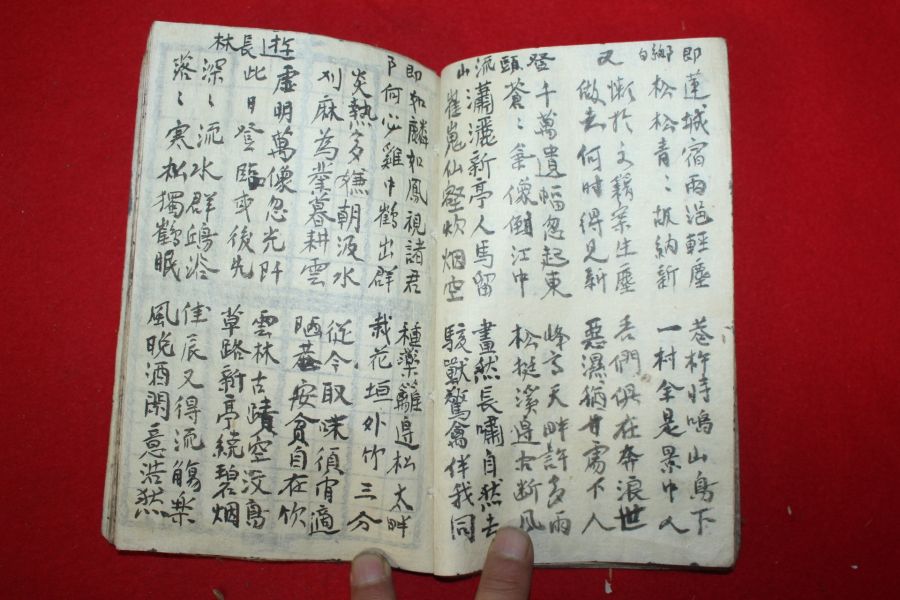 即蓮城宿雨浥輕塵 巷杵時鳴山鳥下
鄕松松青〻故納新 一村全是景中人
又懶於文藉業生塵 吾們俱在奔浪世
做去何時得見新 惡濕猶甘處下人
登千萬遺幅忽起東 峰高天畔許多雨
頭蒼〻像倒江中 松挺溪邊古断風
流瀟灑新亭人馬留 畫然長嘯自然去
山崔嵬仙壑吹烟空 駭獸驚禽伴我同
即如麟如鳳視諸君 種藥籬邊松太畔
何必雞中鶴出群 栽花垣外竹三分
炎熱多嫌朝汲水 從今取味須宵適
刈麻為業暮耕雲 晒安貧自在欣
遊虛明萬像忽光阡 雲林古蹟空沒鳥
長此日登臨或後先 草路新亭繞碧烟
林深〻流水群鷗浴 佳辰又得流觴樂
落〻寒松獨鶴眠 風晚酒闲意浩然